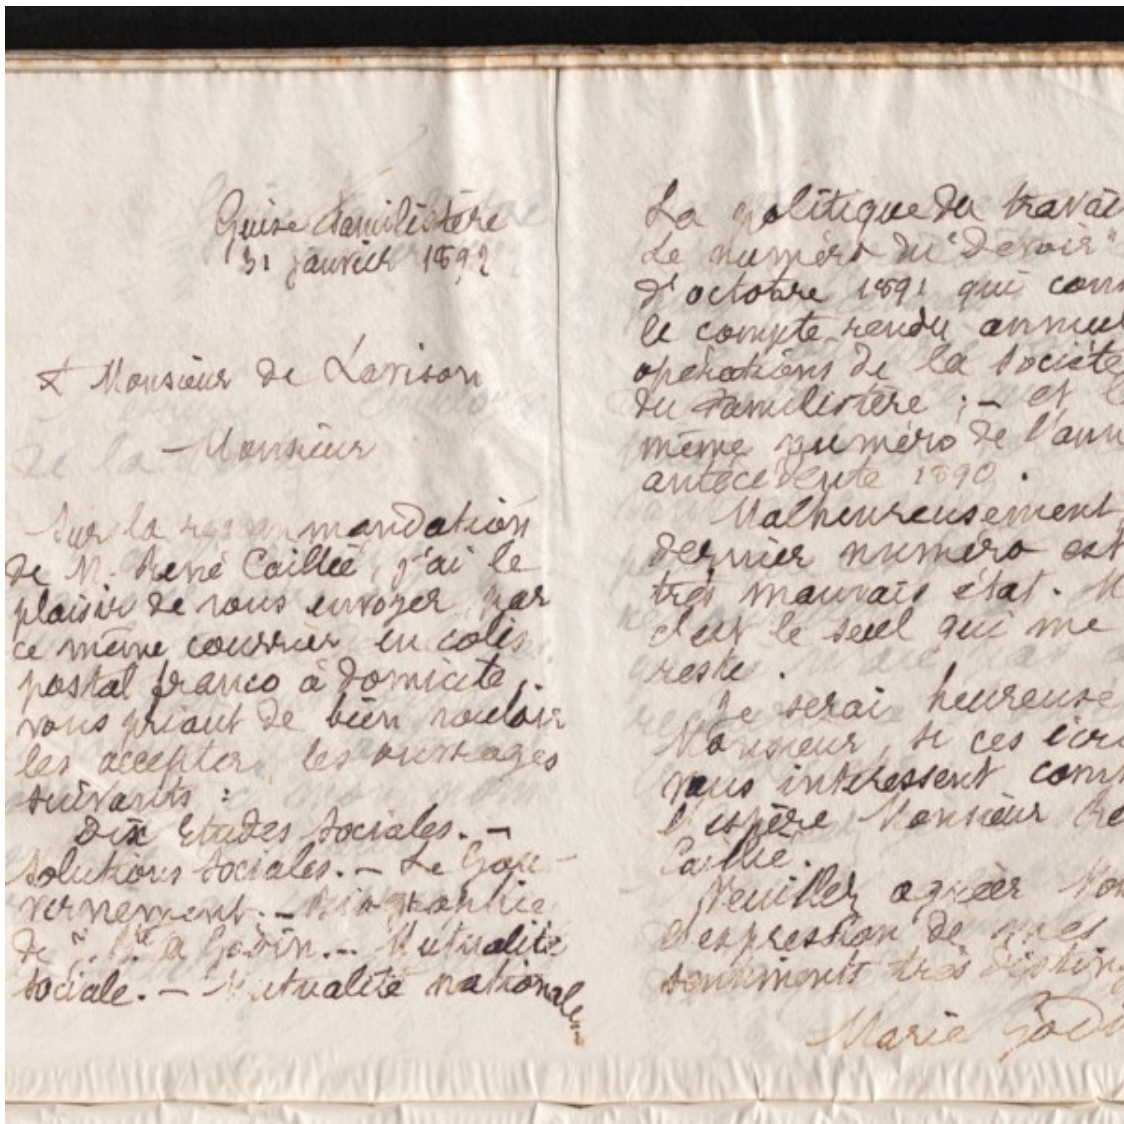 Guise Familistère
31 janvier 1892
A Monsieur de Larison
Monsieur
Sur la recommandation
de M. René Caillié, j'ai le
plaisir de vous envoyer, par
ce même courrier en colis
postal franco à domicile,
vous priant de bien vouloir
les accepter, les ouvrages
suivants :
Dix Etudes Sociales. —
Solutions Sociales. — Le Gou-
vernement. — Biographie
de J. Bte A Godin. — Mutualité
Sociale. — Mutualité nationale —
La politique du travai
Le numéro du "Devoir"
d'octobre 1891 qui con
le compte-rendu annuel
opérations de la Société
du Familistère ; — et l
même numéro de l'ann
antécédente 1890.
Malheureusement,
dernier numéro est
très mauvais état. M
c'est le seul qui me
reste.
Je serai heureuse
Monsieur, si ces écri
vous intéressent com
l'espère Monsieur Re
Caillié.
Veuillez agréer Mon
l'expression de mes
sentiments très distin
Marie Godi